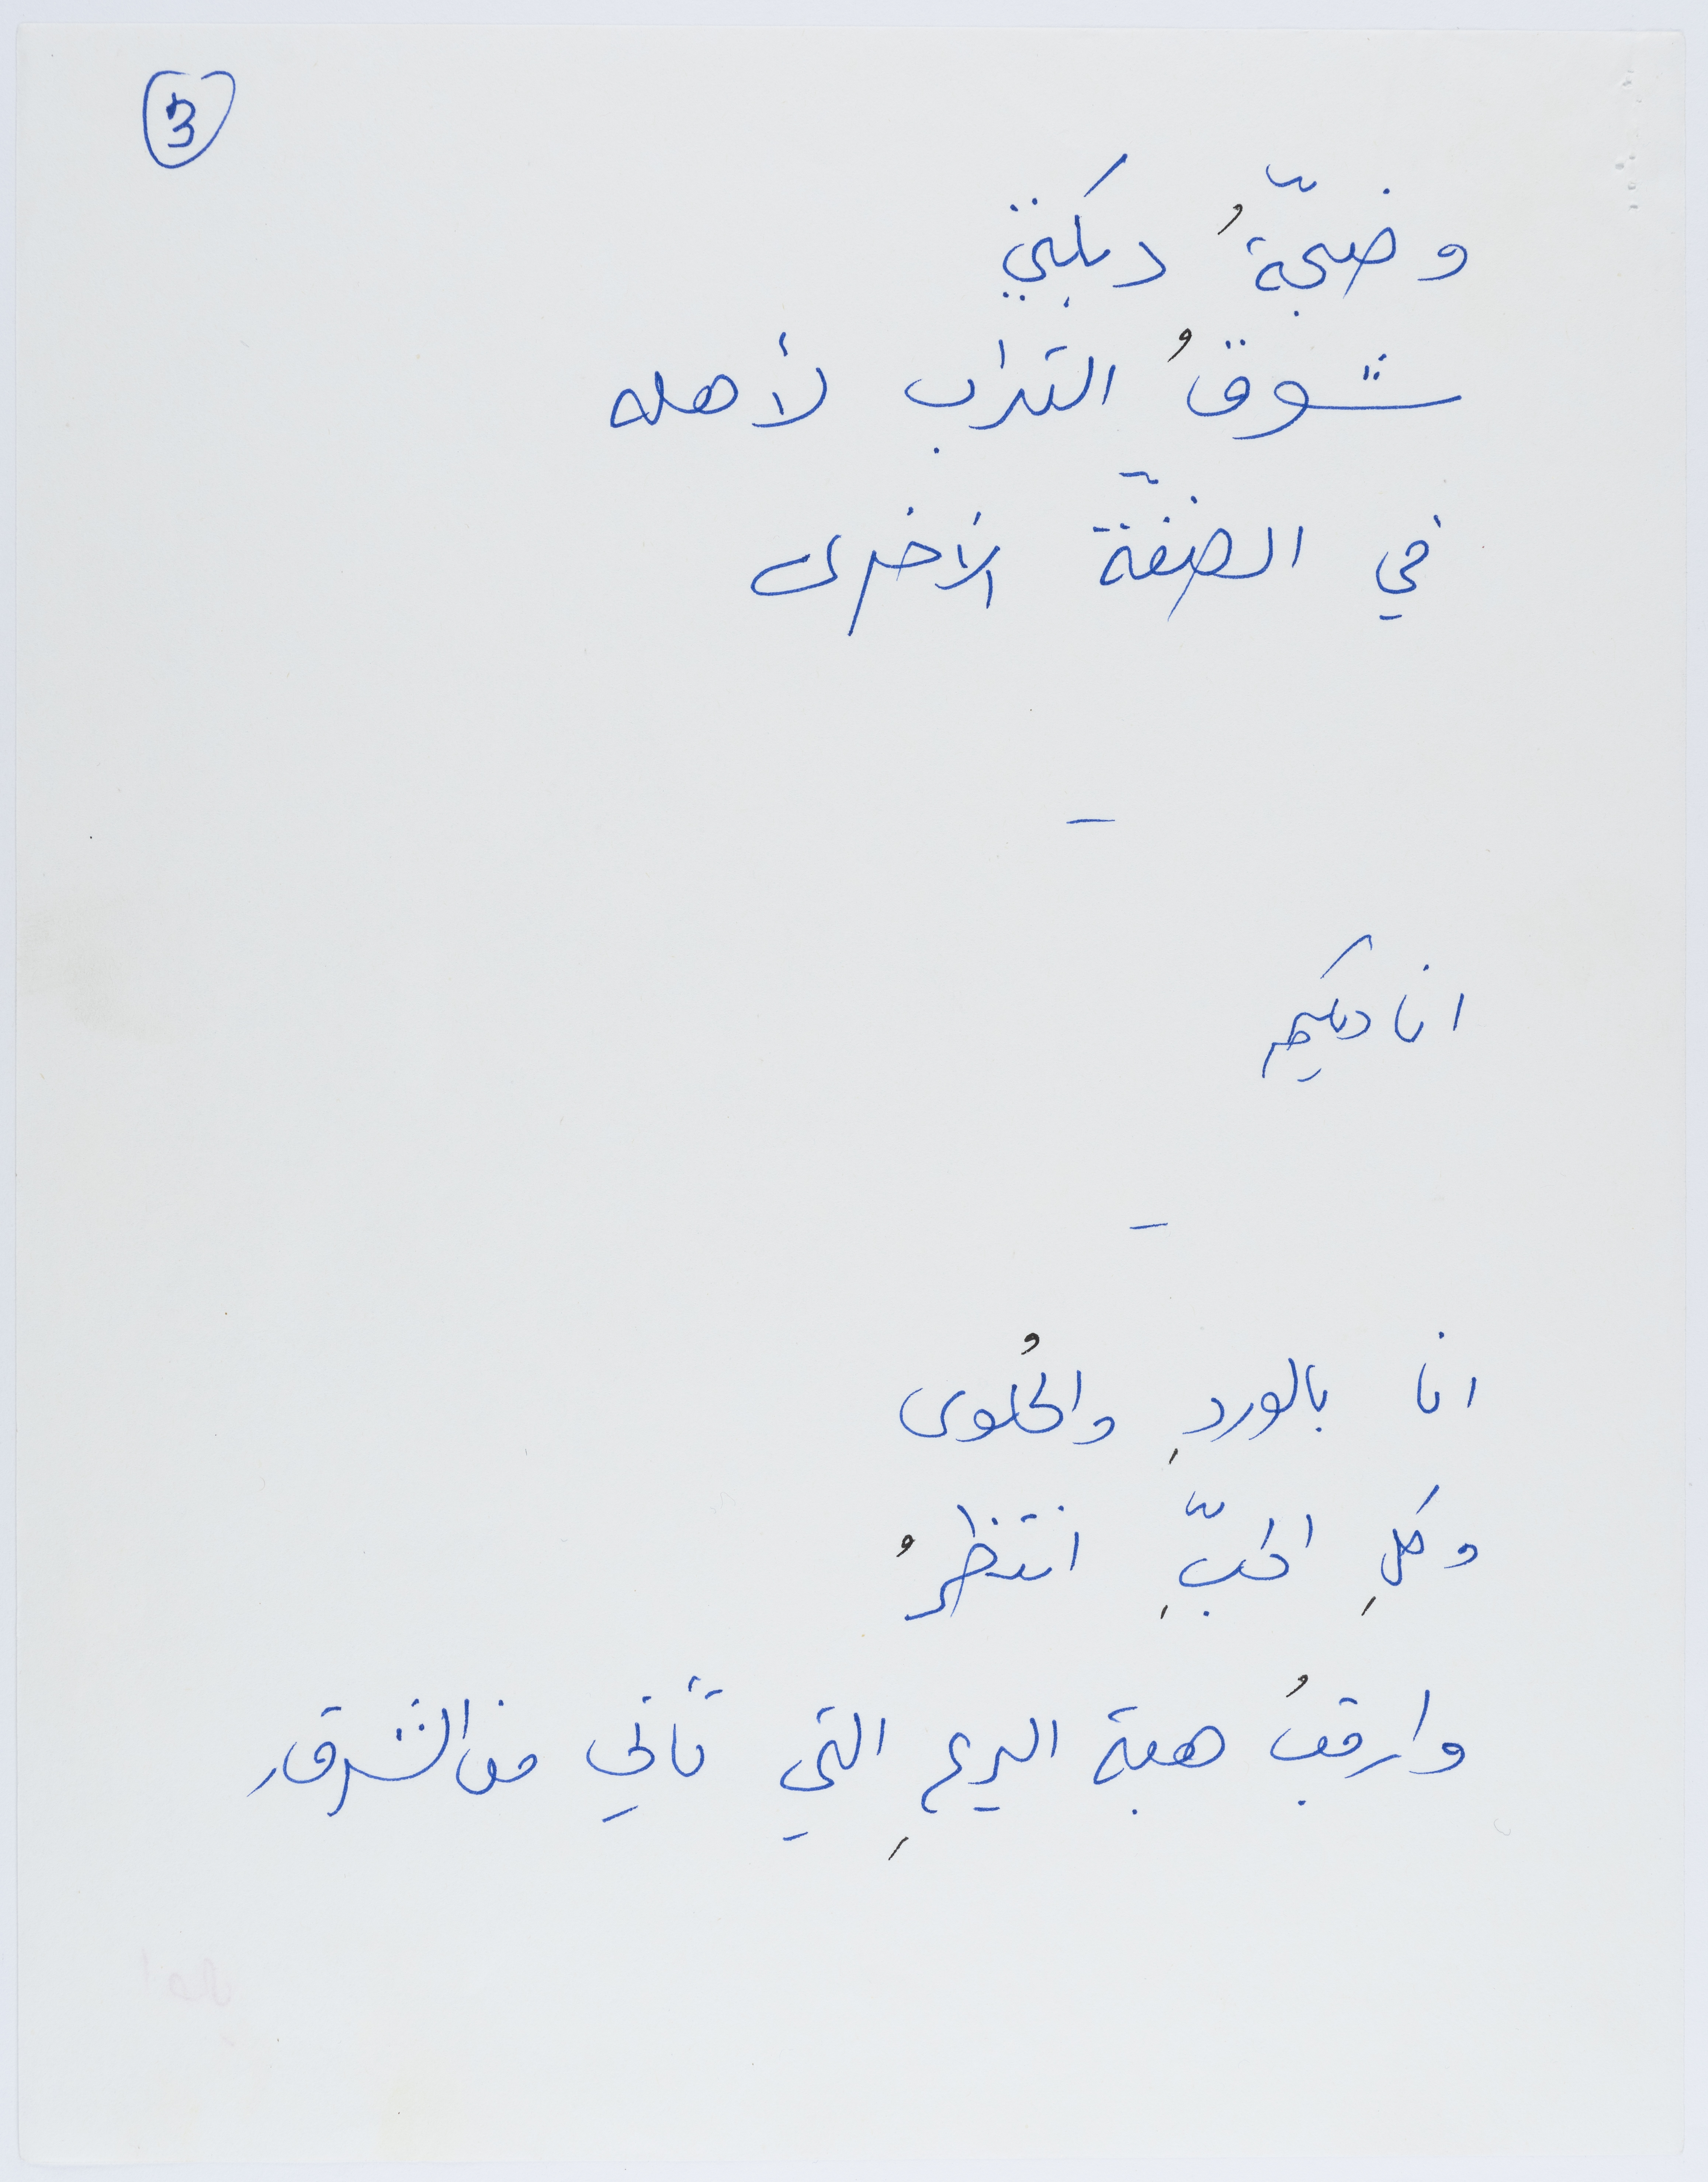 3
وضجّةُ دبكتي
شوقُ التراب لأهله
في الضفّة الأخرى
–
اناديكم
–
انا بالوردِ والحُلوى
وكلِ الحبِّ انتظرُ
وارقبُ هبة الريحِ التي تأتي من الشرق